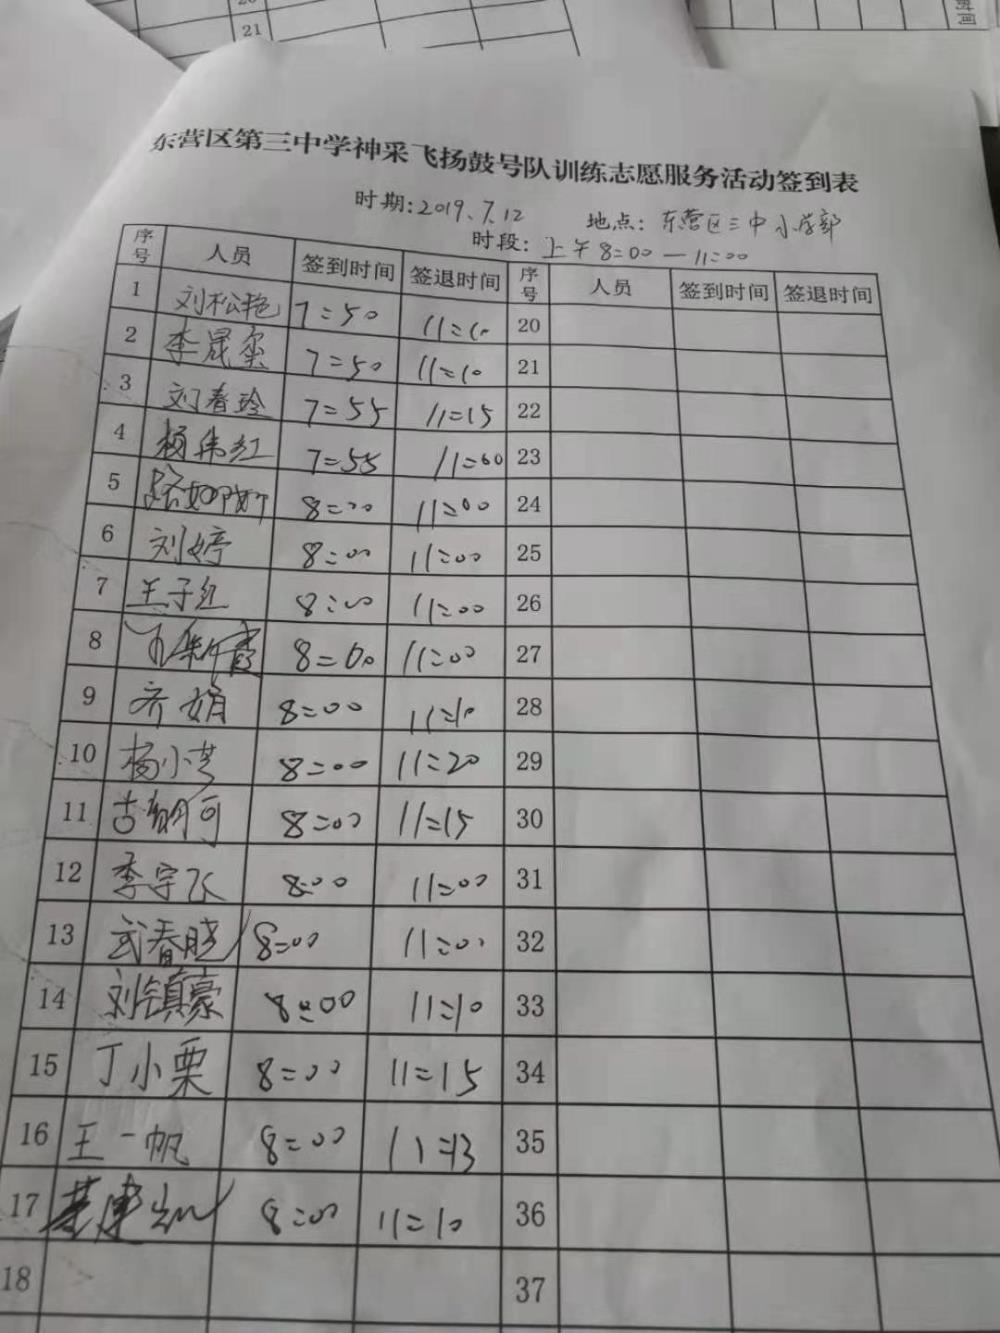 21
东营区第三中学神采飞扬鼓号队训练志愿服务活动签到表
时期:2019.7.12 地点:东营区三中小学部
时段:上午8:00—11:00
序号 人员 签到时间 签退时间 序号 人员 签到时间 签退时间
1 刘松艳 7:50 11:10 20
2 李晟玺 7:50 11:10 21
3 刘春玲 7:55 11:15 22
4 杨伟红 7:55 11:00 23
5 8:00 11:00 24
6 刘婷 8:00 11:00 25
7 王子红 8:00 11:00 26
8 8:00 11:00 27
9 齐娟 8:00 11:10 28
10 杨小芳 8:00 11:20 29
11 8:00 11:15 30
12 李宇飞 8:00 11:00 31
13 武春晓 8:00 11:00 32
14 刘镇豪 8:00 11:10 33
15 丁小栗 8:00 11:15 34
16 王一帆 8:00 11:13 35
17 8:00 11:10 36
18 37